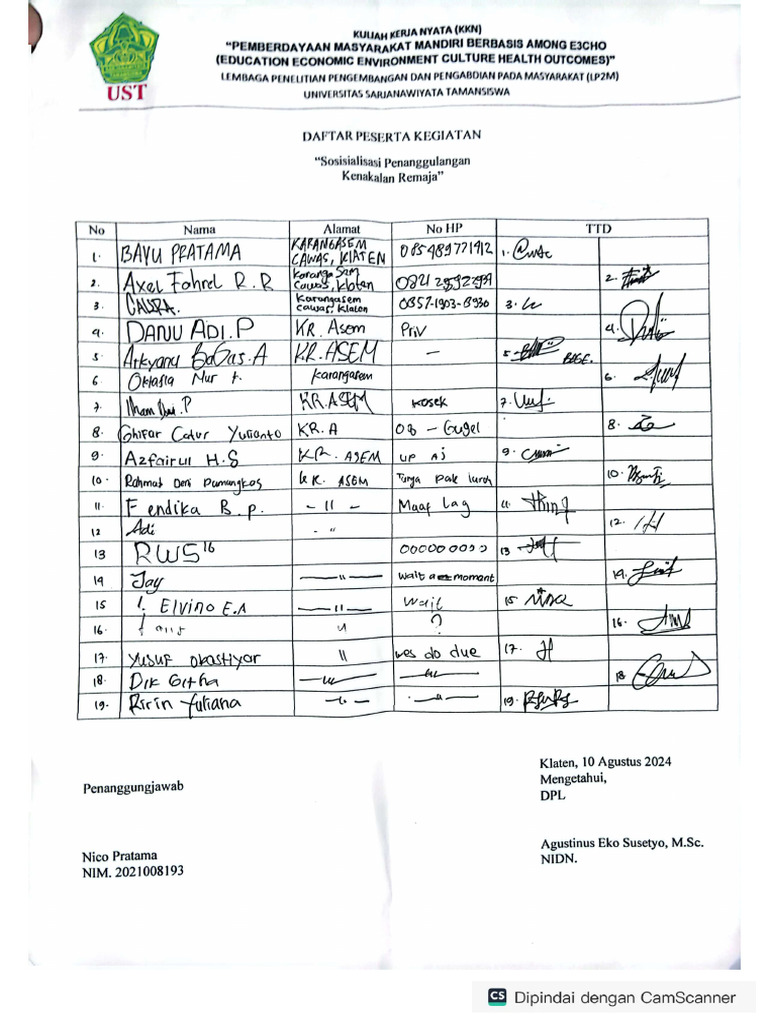 KULIAH KERJA NYATA (KKN)
"PEMBERDAYAAN MASYARAKAT MANDIRI BERBASIS AMONG E3CHO
(EDUCATION ECONOMIC ENVIRONMENT CULTURE HEALTH OUTCOMES)"
LEMBAGA PENELITIAN PENGEMBANGAN DAN PENGABDIAN PADA MASYARAKAT (LP2M)
UNIVERSITAS SARJANAWIYATA TAMANSISWA
UST
DAFTAR PESERTA KEGIATAN
"Sosisialisasi Penanggulangan
Kenakalan Remaja"
No Nama Alamat No HP TTD
1. BAYU PRATAMA KARANGASEM CAWAS, KLATEN 085489771912 1.
2. Axel Fahrel R.R Karanga Sem Cawas, Klaten 2.
3. Karangasem Cawas, Klaten 0857-1903-8930 3.
4. DANU ADI.P KR. Asem Priv 4.
5 Arkyanu BaGas.A KR. ASEM — 5.
6 Oktafia Nur Karangasem 6.
7. Ilham Dwi.P KR.ASEM Kosek 7.
8. Ghifar Catur Yulianto KR.A 08 - Gugel 8.
9. Azfairul H.S KR. ASEM 9.
10. Rahmat Deni Pamungkas KR. ASEM Tanya pak lurah 10.
11. Fendika B.p. - 11 - Maaf lag 11.
12 Adi - " 12.
13 RWS 16 13
14 Jay — " — wait a moment 14.
15 Elvino E.A — 11 — Wait 15.
16. " ? 16.
17. Yusuf 11 wes do due 17.
18. Dik Githa — " — — " — 18
19. Ririn Yuliana — " — — " — 19.
Klaten, 10 Agustus 2024
Mengetahui,
DPL
Penanggungjawab
Agustinus Eko Susetyo, M.Sc.
NIDN.
Nico Pratama
NIM. 2021008193
CS Dipindai dengan CamScanner